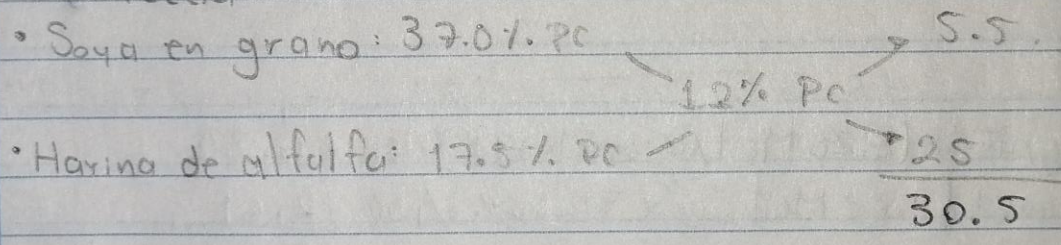 • Soya en grano: 37.0%. PC 5.5
12% PC
• Harina de alfalfa: 17.5%. PC 25
30.5